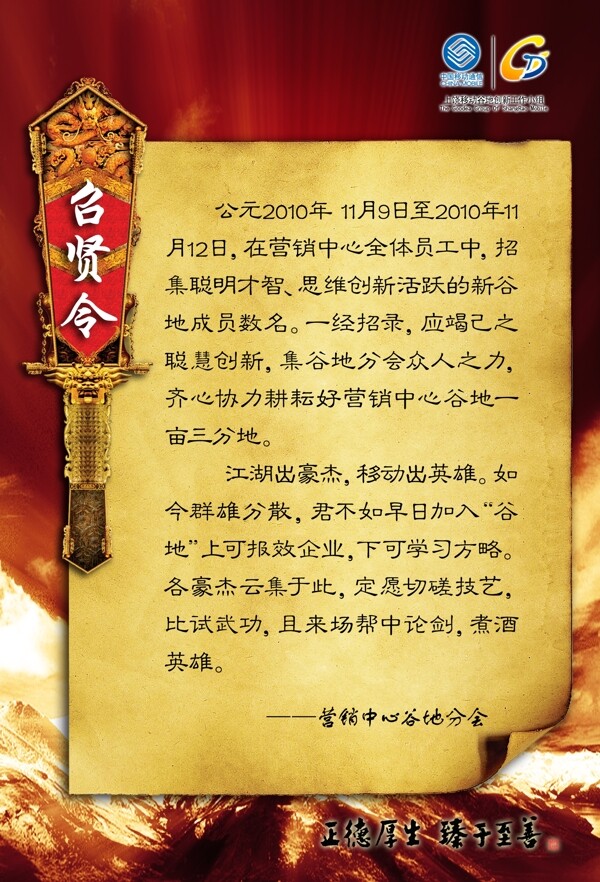 中国移动通信
CHINA MOBILE
上饶移动谷地创新工作小组
The Goodea Group Of ShangRao Mobile
召贤令
公元2010年 11月9日至2010年11
月12日，在营销中心全体员工中，招
集聪明才智、思维创新活跃的新谷
地成员数名。一经招录，应竭己之
聪慧创新，集谷地分会众人之力，
齐心协力耕耘好营销中心谷地一
亩三分地。
江湖出豪杰，移动出英雄。如
今群雄分散，君不如早日加入“谷
地”上可报效企业，下可学习方略。
各豪杰云集于此，定愿切磋技艺，
比试武功，且来场帮中论剑，煮酒
英雄。
——营销中心谷地分会
正德厚生 臻于至善